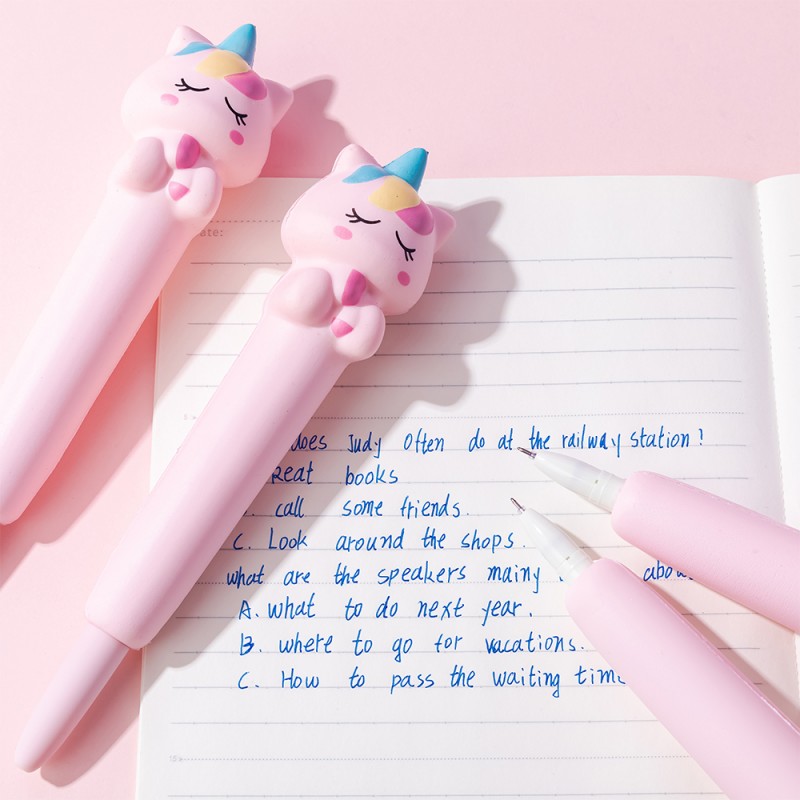 ate:
does Judy Often do at the railway station?
Reat books
call some friends.
C. Look around the shops.
what are the speakers mainy abou
A. what to do next year.
B. where to go for vacations.
C. How to pass the waiting time